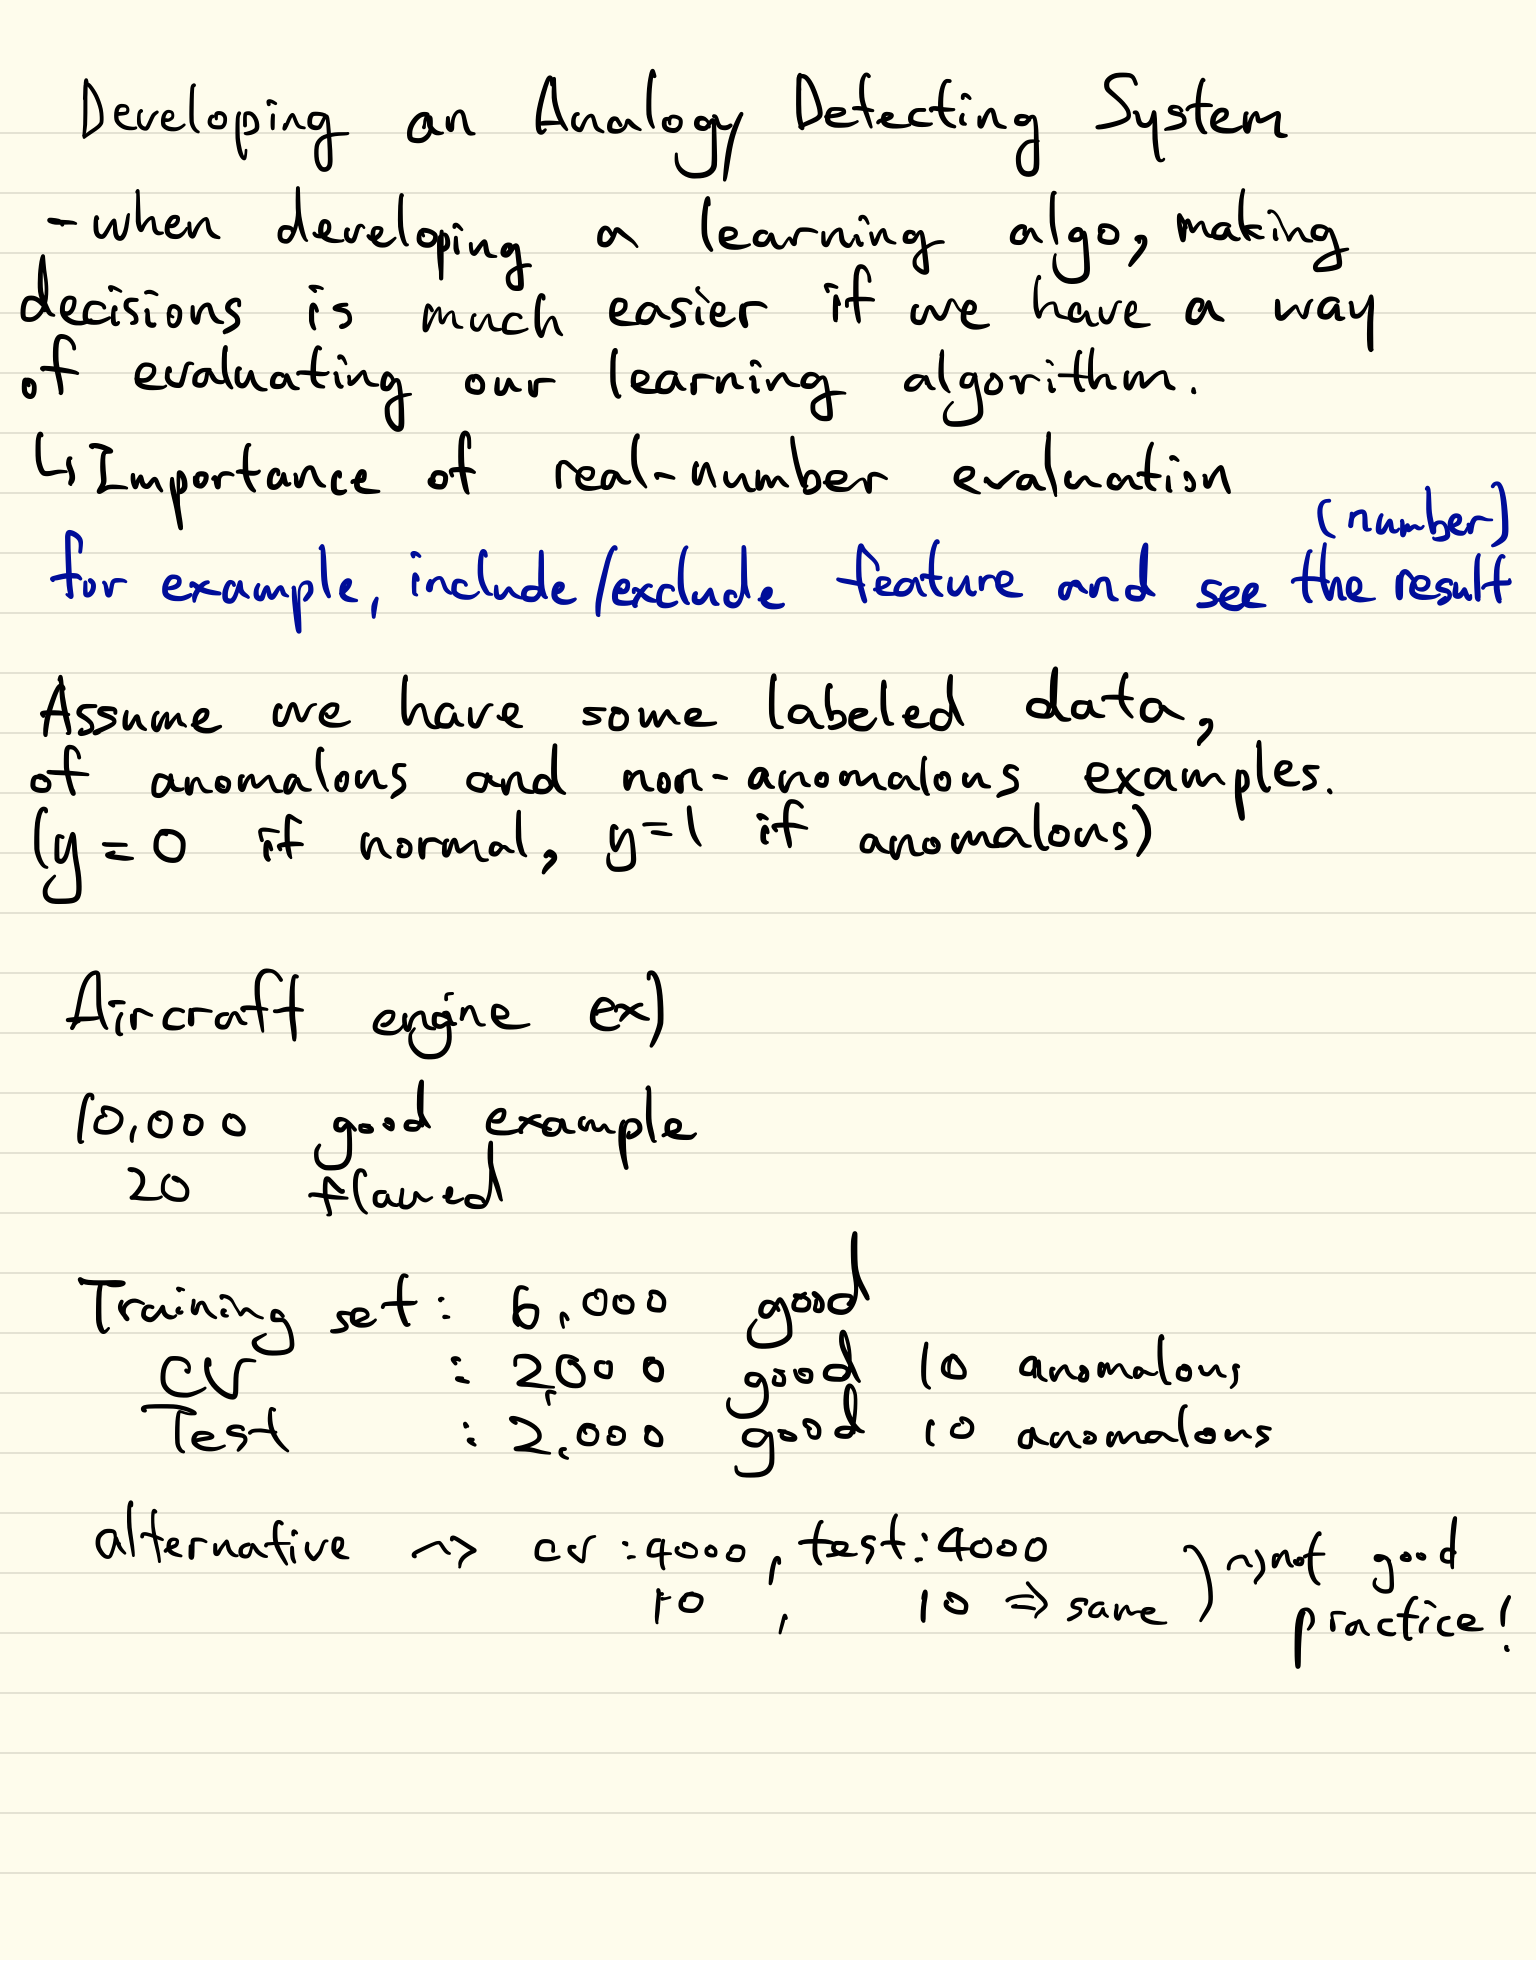 Developing an Analogy Detecting System
- when developing a learning algo, making
decisions is much easier if we have a way
of evaluating our learning algorithm.
↳ Importance of real-number evaluation
(number)
for example, include/exclude feature and see the result
Assume we have some labeled data,
of anomalous and non-anomalous examples.
(y=0 if normal, y=1 if anomalous)
Aircraft engine ex)
10,000 good example
20 flawed
Training set: 6,000 good
CV : 2,000 good 10 anomalous
Test : 2,000 good 10 anomalous
alternative ~> cv:4000, test:4000
10, 10 => same ) ~> not good
practice!